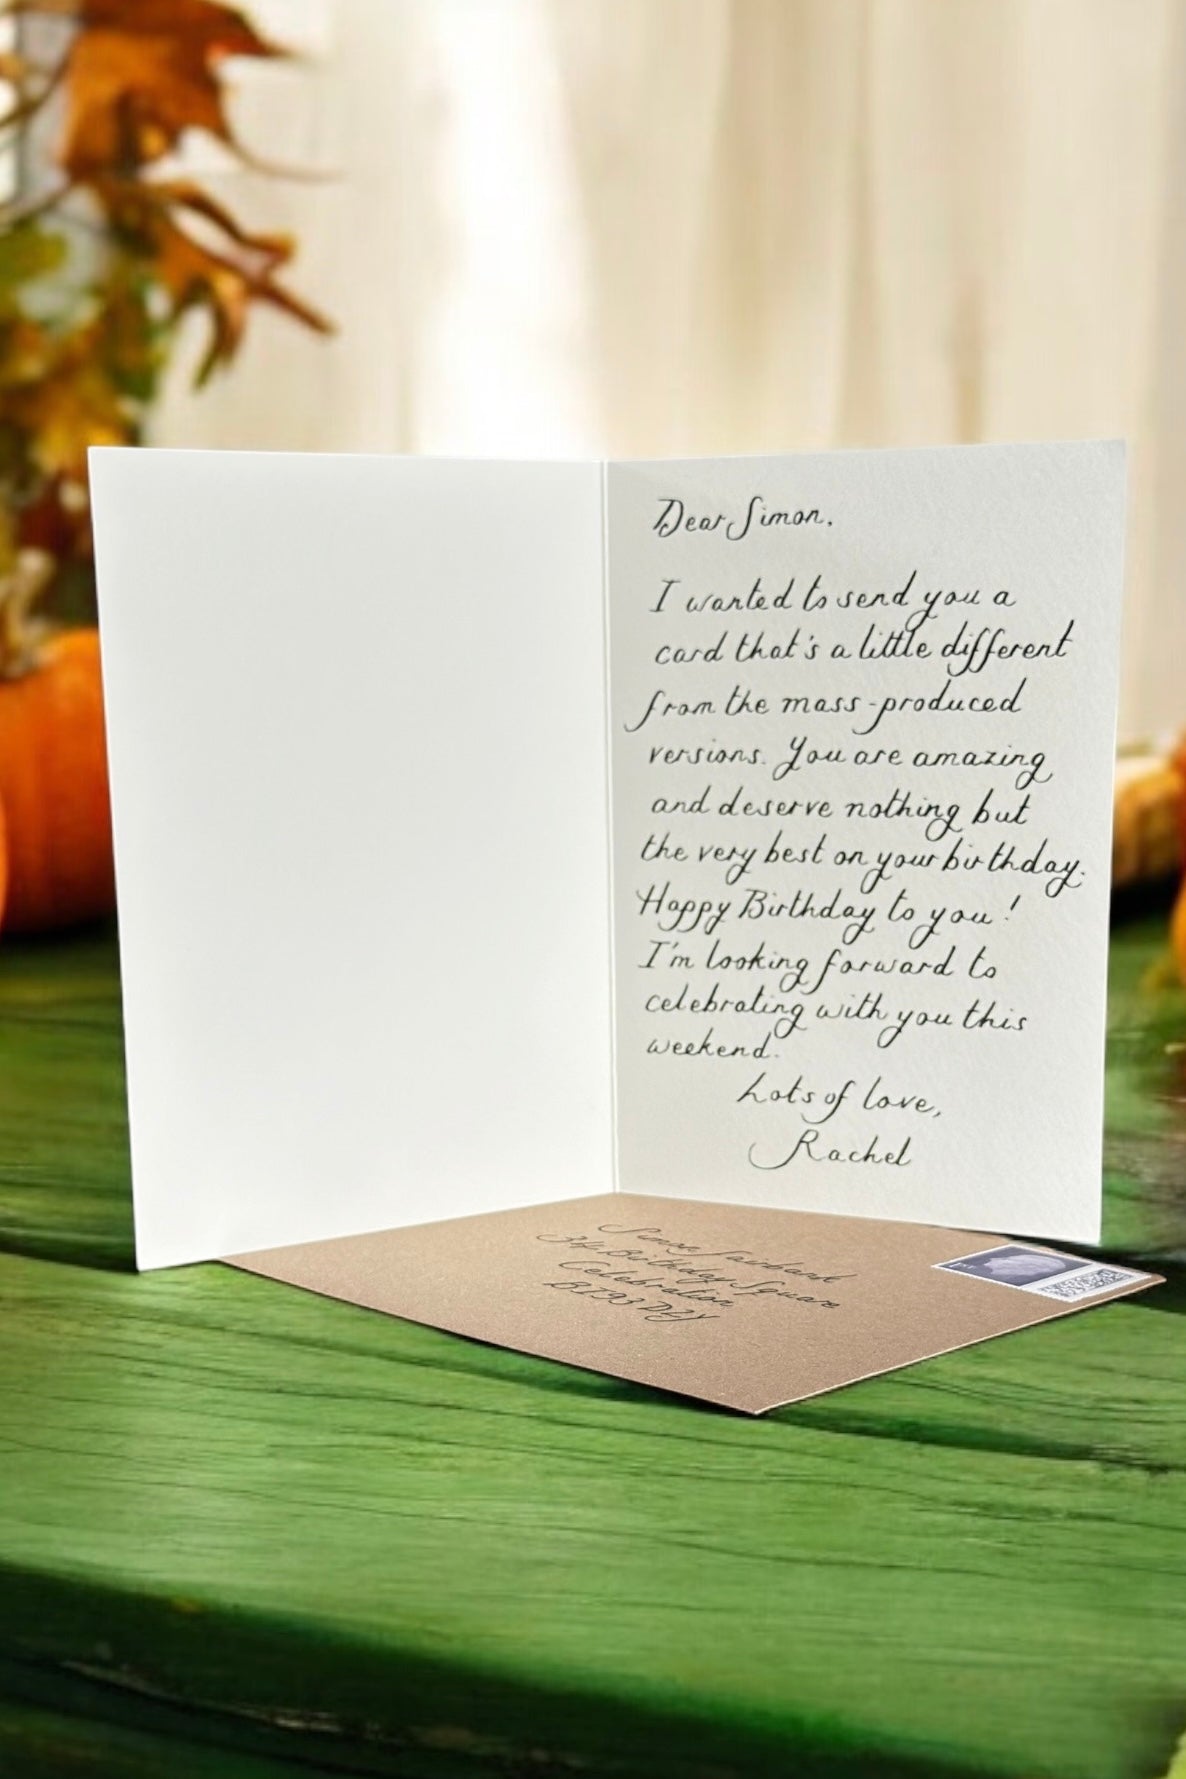 Dear Simon,
I wanted to send you a
card that's a little different
from the mass-produced
versions. You are amazing
and deserve nothing but
the very best on your birthday.
Happy Birthday to you!
I'm looking forward to
celebrating with you this
weekend.
Lots of love,
Rachel
Simon Fairbank
34 Birthday Square
Celebration